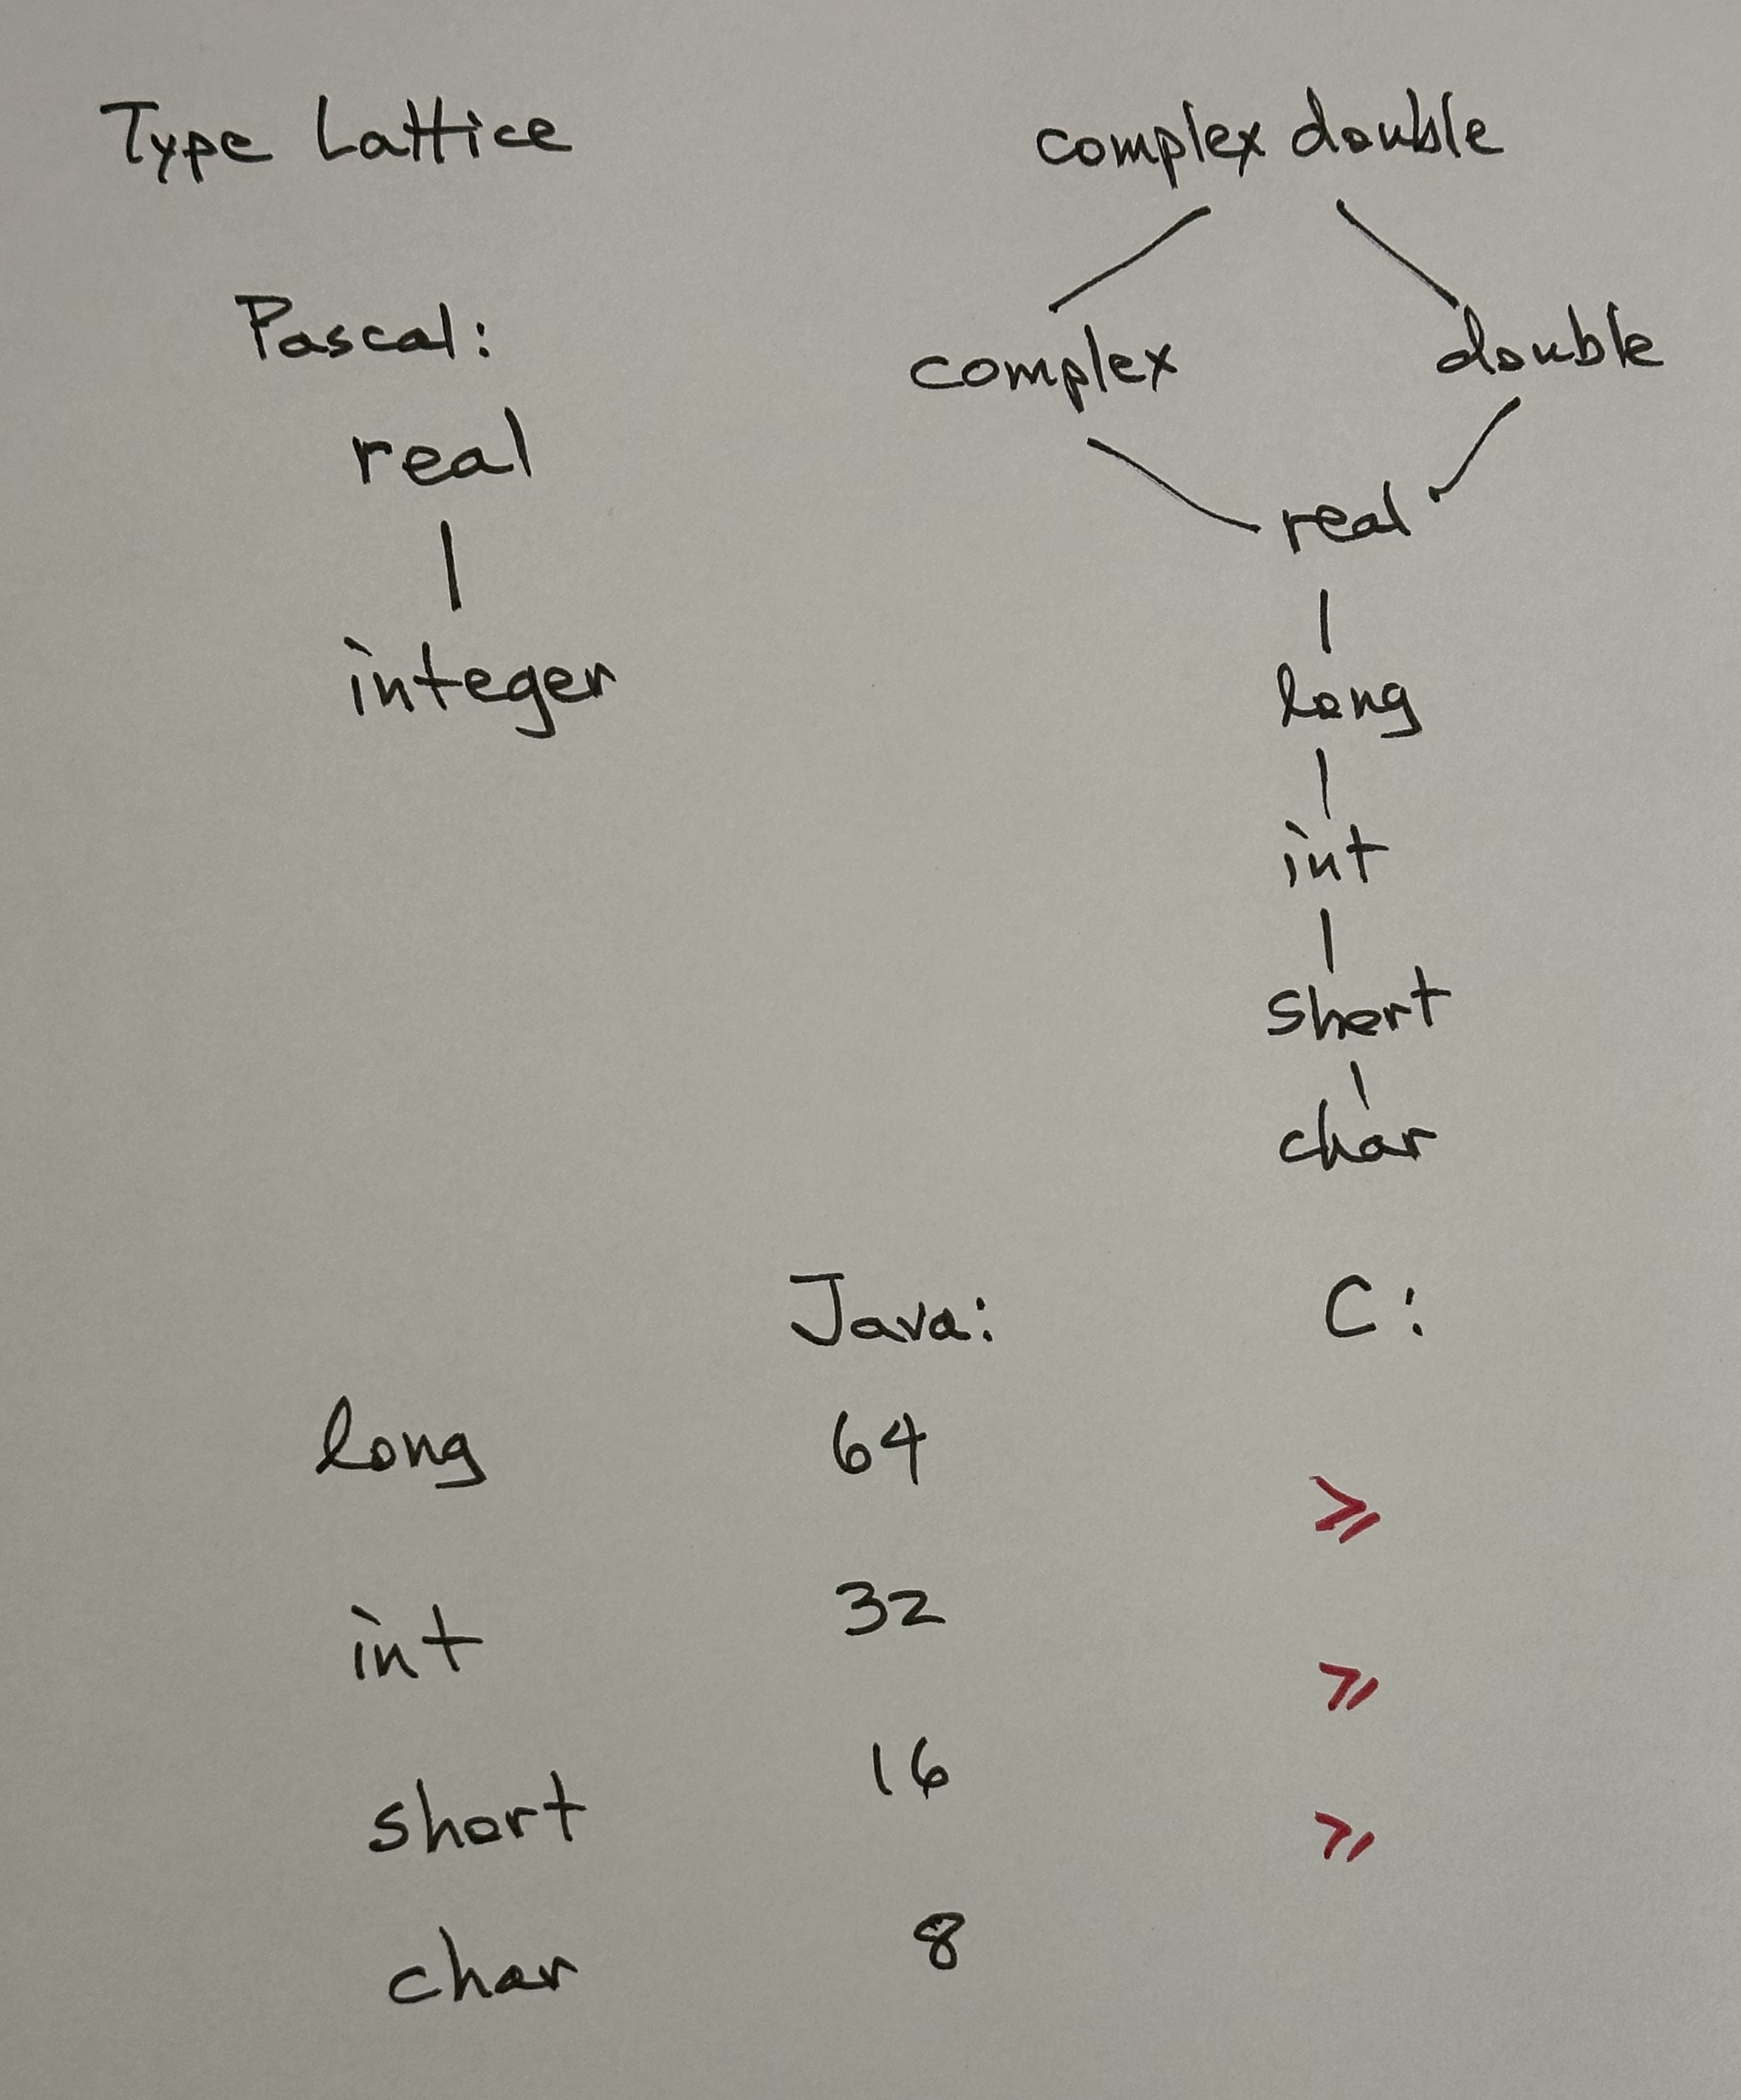 Type Lattice
Pascal:
real
integer
complex double
complex double
real
long
int
short
char
Java: C:
long 64
≥
int 32
≥
short 16
≥
char 8